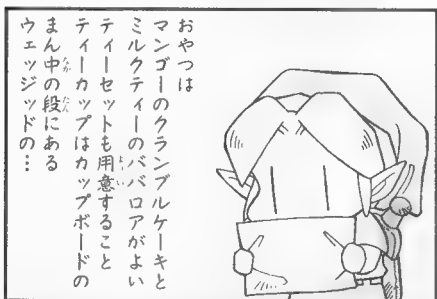 おやつは
マンゴーのクランブルケーキと
ミルクティーのババロアがよい
ティーセットも用意すること
ティーカップはカップボードの
まん中の段にある
ウェッジウッドの…